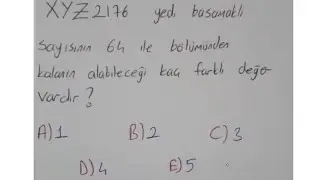 XYZ2176 yedi basamaklı
sayısının 64 ile bölümünden
kalanın alabileceği kaç farklı değer
vardır?
A) 1 B) 2 C) 3
D) 4 E) 5